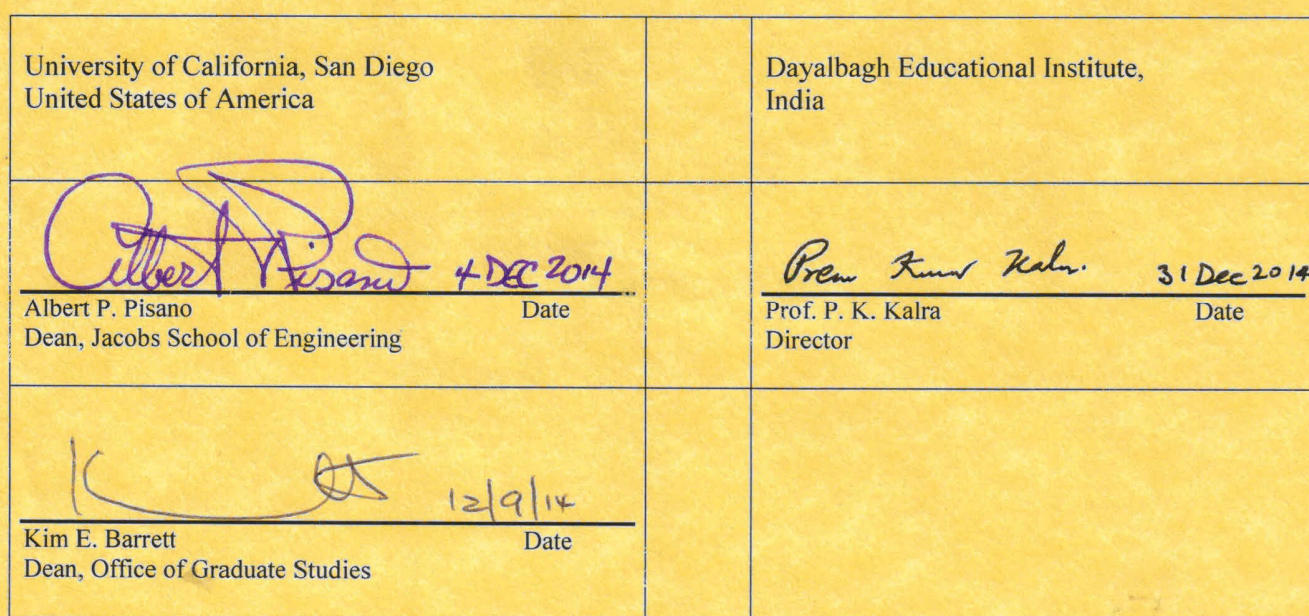 University of California, San Diego
United States of America
Albert P Pisano 4 DEC 2014
Albert P. Pisano Date
Dean, Jacobs School of Engineering
12/9/14
Kim E. Barrett Date
Dean, Office of Graduate Studies
Dayalbagh Educational Institute,
India
Prem Kumar Kalra. 31 Dec 2014
Prof. P. K. Kalra Date
Director